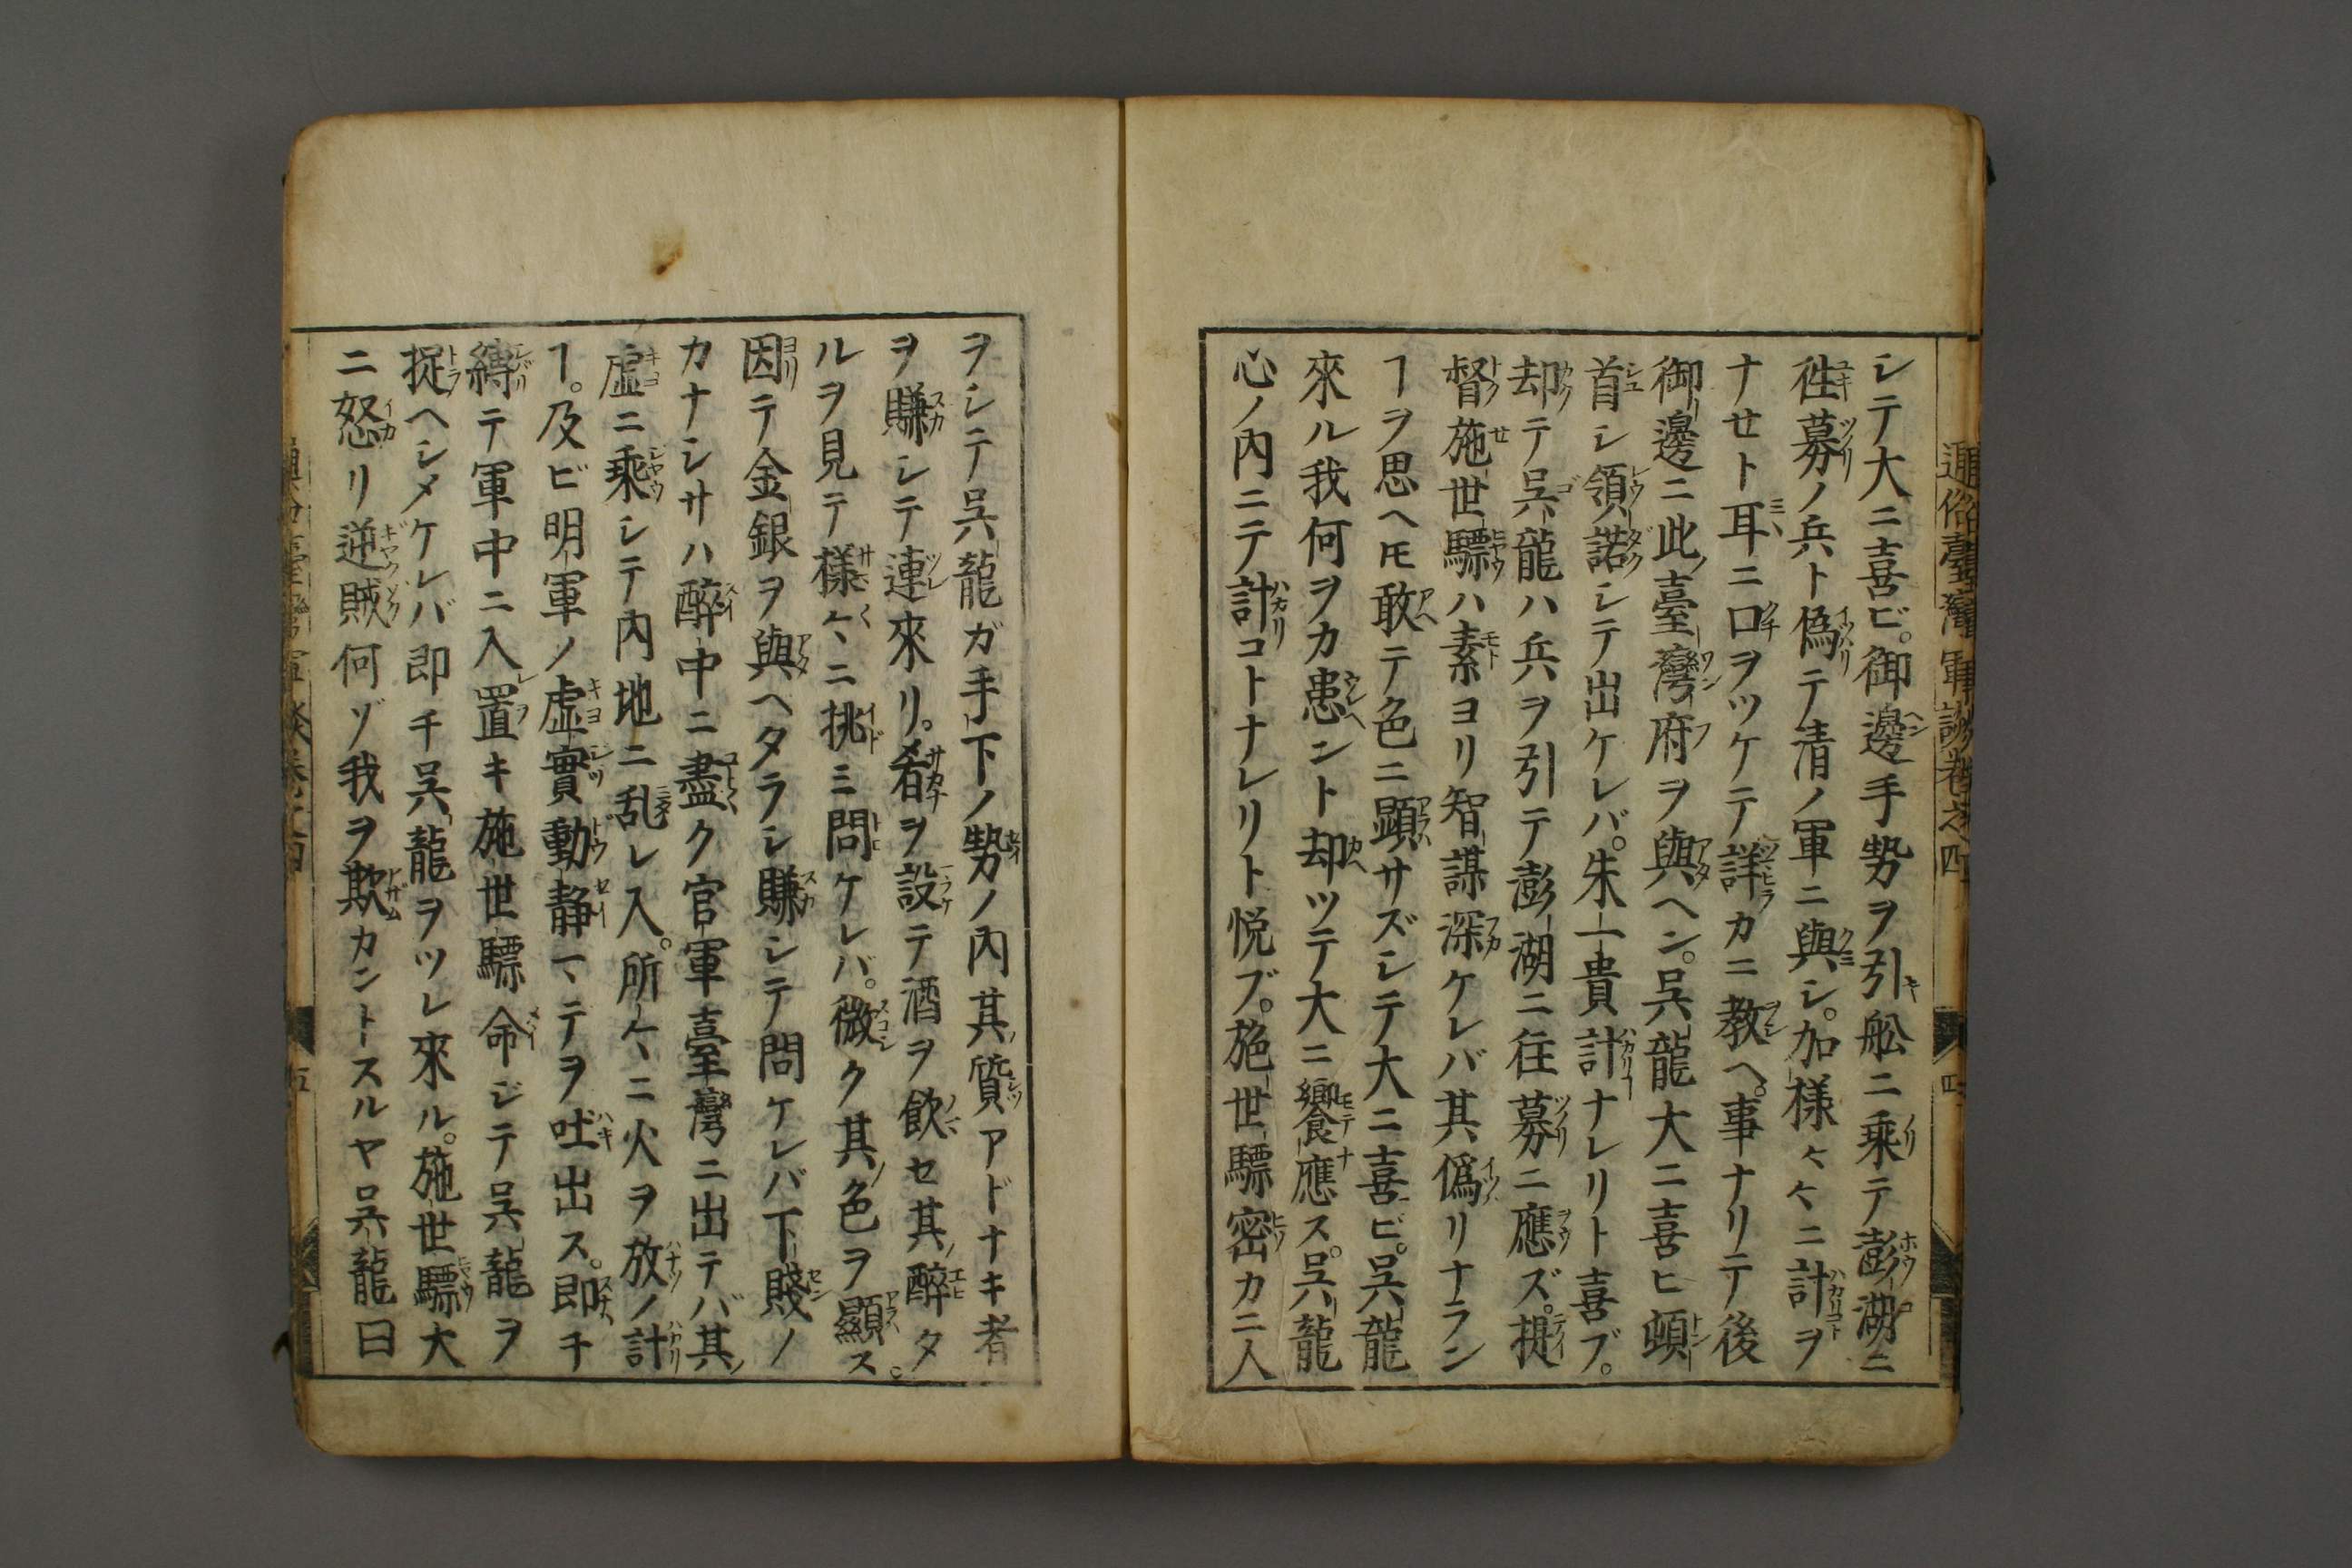 通俗臺灣軍談卷之四
シテ大ニ喜ビ。御邊手勢ヲ引舩ニ乗テ澎湖ニ
徃募ノ兵ト偽テ清ノ軍ニ與シ。加様々々ニ計ヲ
ナセト耳ニ口ヲツケテ詳カニ教ヘ。事ナリテ後
御邊ニ此臺灣府ヲ與ヘン。呉龍大ニ喜ヒ頓
首シ領諾シテ出ケレバ。朱一貴計ナレリト喜ブ。
却テ呉龍ハ兵ヲ引テ澎湖ニ往募ニ應ズ。提
督施世驃ハ素ヨリ智謀深ケレバ其偽リナラン
ヿヲ思ヘ𪜈敢テ色ニ顕サズシテ大ニ喜ビ。呉龍
來ル我何ヲカ患ント却ツテ大ニ饗應ス。呉龍
心ノ内ニテ計コトナレリト悦ブ。施世驃密カニ人
四
ヲシテ呉龍ガ手下ノ勢ノ内其質アドナキ者
ヲ賺シテ連來リ。肴ヲ設テ酒ヲ飲セ其醉タ
ルヲ見テ様々ニ挑ミ問ケレバ。微ク其色ヲ顯ス。
因テ金銀ヲ與ヘタラシ賺シテ問ケレバ下賤ノ
カナシサハ醉中ニ盡ク官軍臺灣ニ出テバ其
虚ニ乘シテ内地ニ乱レ入。所々ニ火ヲ放ノ計
ヿ。及ビ明軍ノ虚實動静一々テヲ吐出ス。即チ
縛テ軍中ニ入置キ施世驃命ジテ呉龍ヲ
捉ヘシメケレバ即チ呉龍ヲツレ來ル。施世驃大
ニ怒リ逆賊何ゾ我ヲ欺カントスルヤ呉龍曰
五